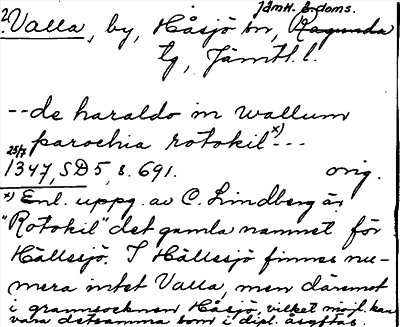 Jämtl. doms.
2. Valla, by, Håsjö sn, Ragunda
tg, Jämtl. l.
-- de haraldo in wallum
parochia rotokil x) ---
25/7
1347, SD 5, s. 691. orig.
x) Enl. uppg. av C. Lindberg är
"Rotokil" det gamla namnet för
Hällesjö. I Hällesjö finnes nu-
mera intet Valla, men däremot
i grannsocknen Håsjö, vilket möjl. kan
vara detsamma som i dipl. åsyftas.